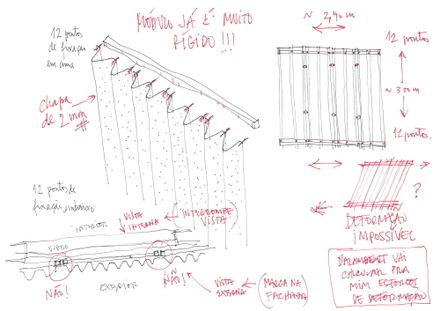 MÓDULO JÁ É MUITO
RÍGIDO !!!
12 pontos
de fixação
em cima
chapa
de 2 mm
12 pontos de
fixação embaixo
VISTA
INTERNA
(INTERROMPE
VISTA)
INTERIOR
VIDRO
NÃO!
EXTERIOR
NÃO!
VISTA
EXTERNA
(MARCA NA
FACHADA)
~ 2,40 m
12 pontos
~ 3.00 m
12 pontos
?
DEFORMAÇÃO
IMPOSSÍVEL
VAI
CALCULAR PRA
MIM ESFORÇOS
DE DEFORMAÇÃO